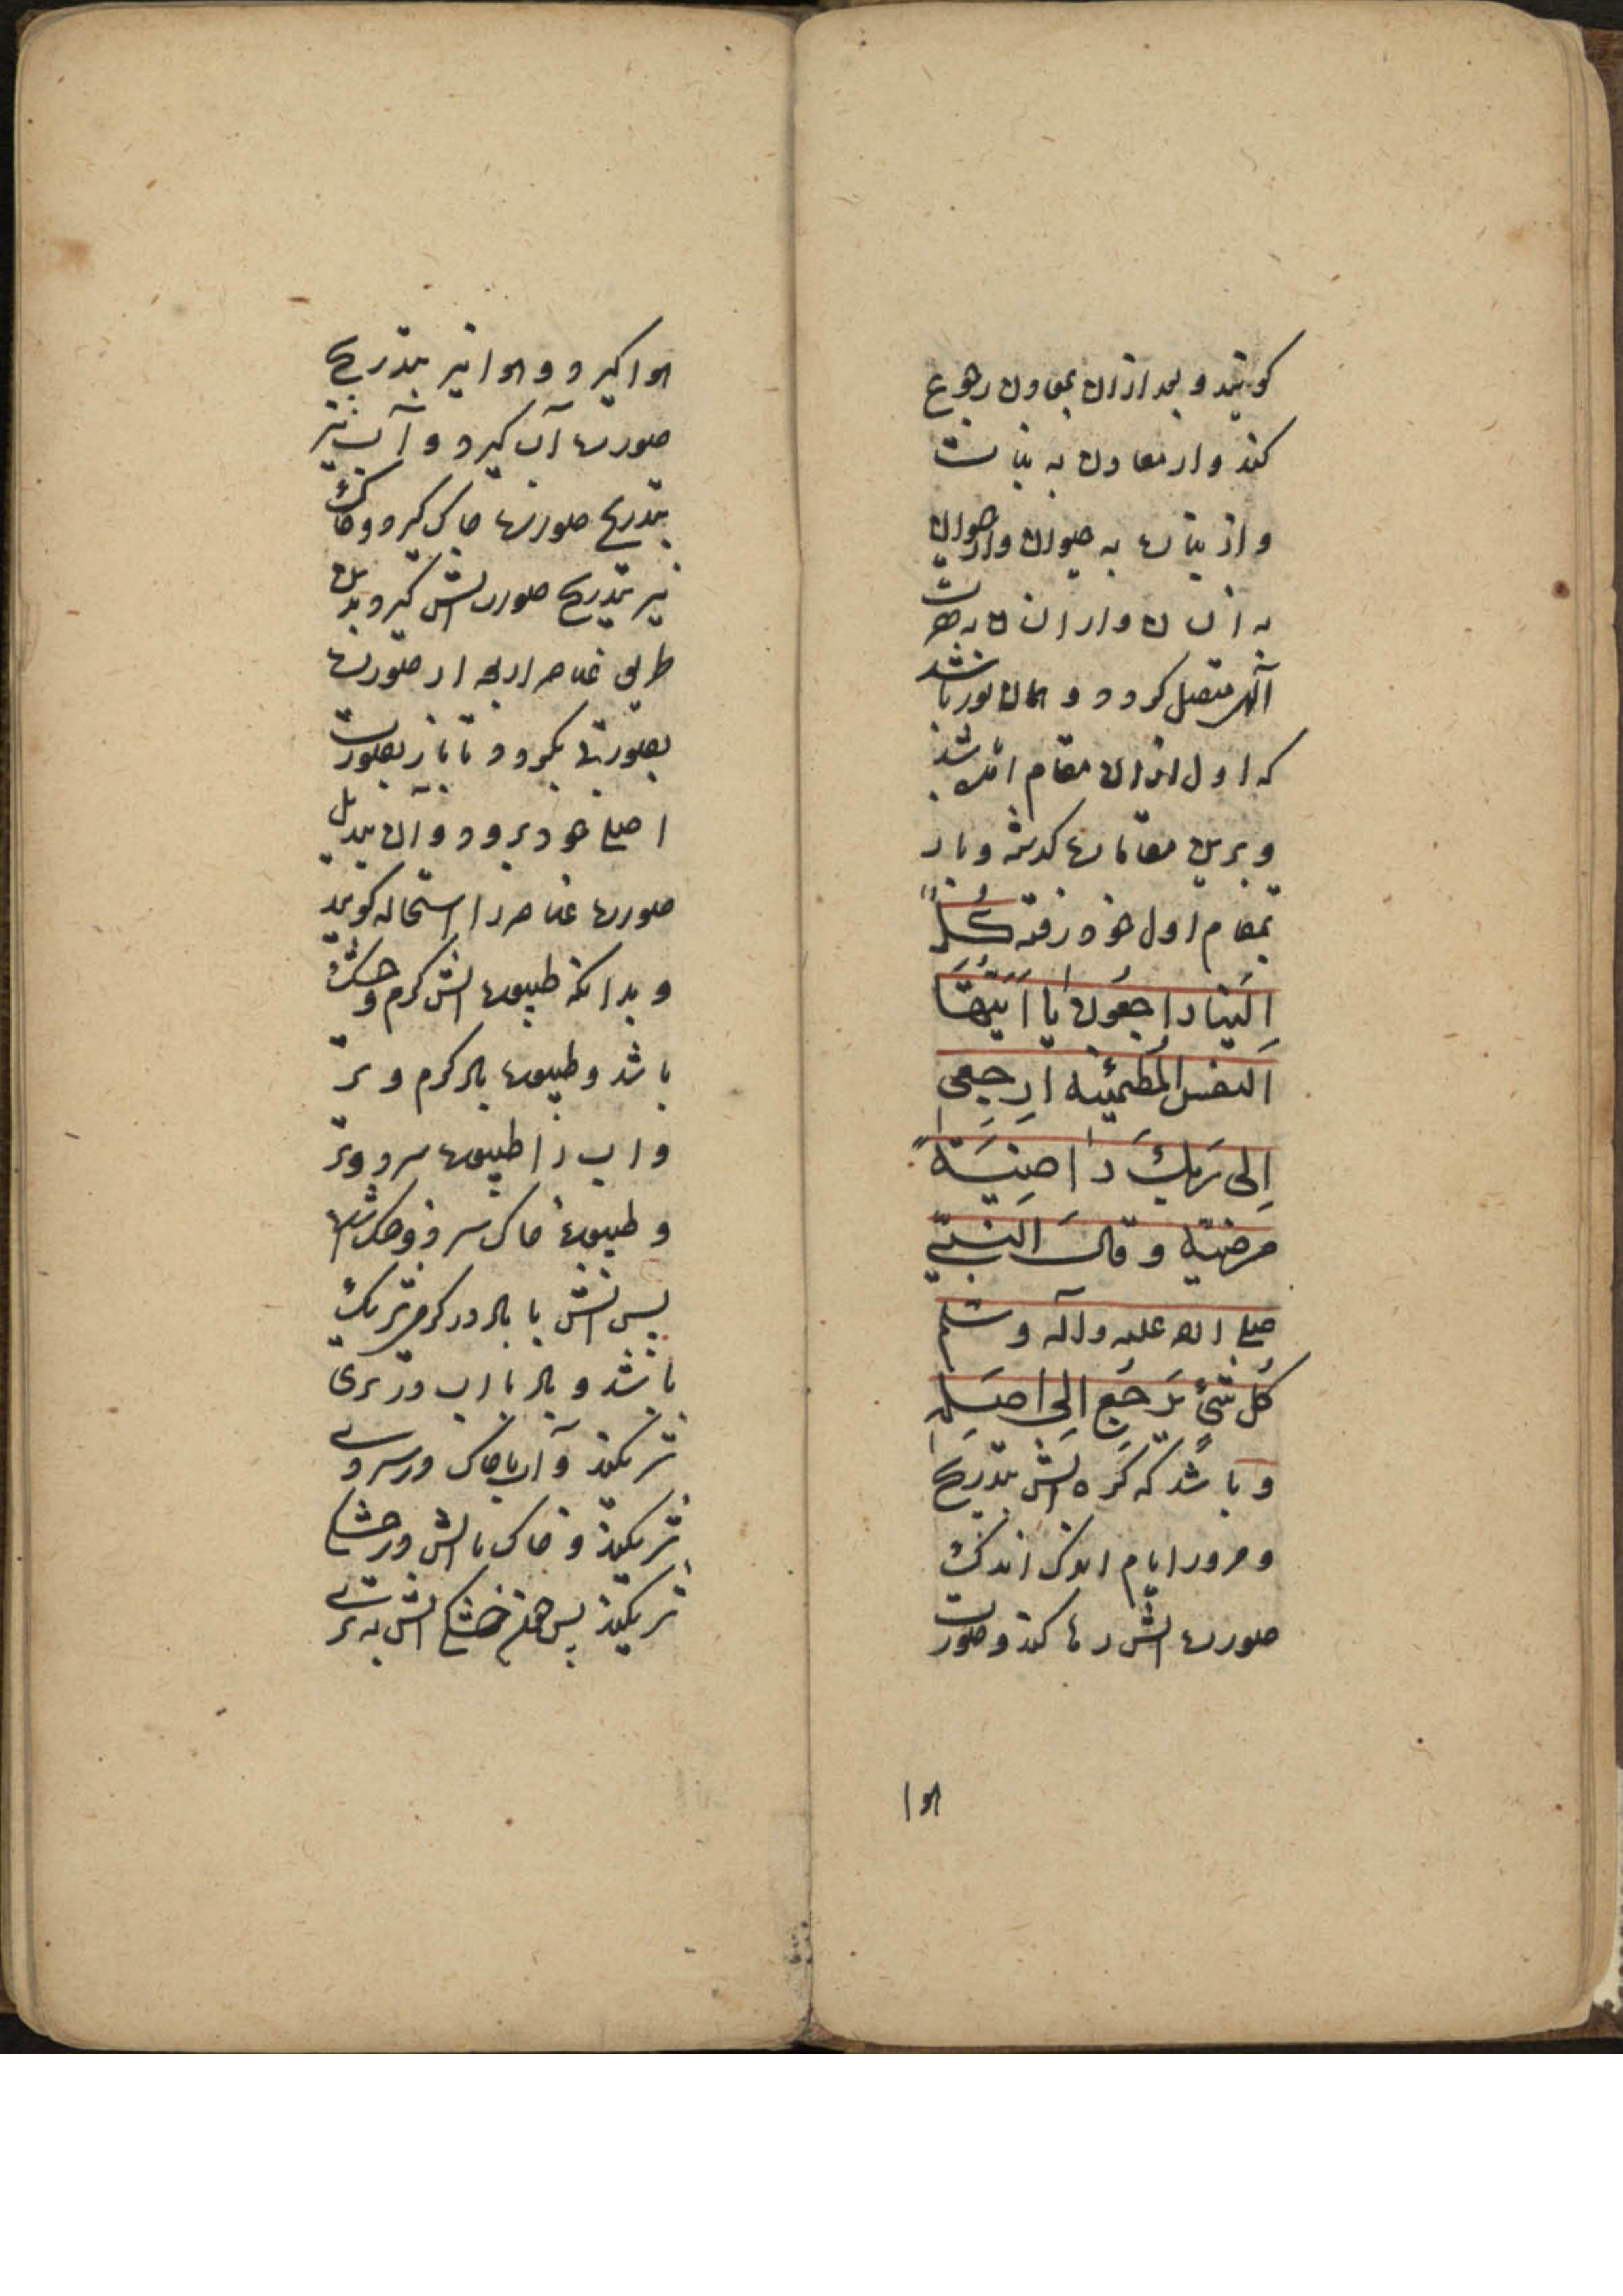 كویند و بعد ازان بمعادن رجوع
كند و از معادن به نبات
و از نبات به حیوان و از حیوان
به انسان و از انسان به حضرت
آلهی متصل كردد و همان نور باشد
كه اول ازان مقام امده باشد
و برین مقامات كذشته و باز
بمقام اول خود رفته كُلٌّ
اِلَینا راجِعُون یا اَیَّتُهَا
اَلنفس المُطمئنة ارجِعی
اِلی رَبِّكِ راضِیَةً
مرضیّة و قالَ النَبیّ
صلی الله علیه وآله و سلم
كُل شَیٍٔ یَرجِعُ اِلی اَصلِه
و باشد كه كره اتش بتدریج
و مرور ایام اندك اندك
صورت اتش رها كند و صورت
هوا
هوا كیرد و هوا نیز بتدریج
صورت آب كیرد و آب نیز
بتدریج صورت خاك كیرد و خاك
نیز بتدریج صورت اتش كیرد و بدین
طریق عناصر اربعه از صورت
بصورتی بكردد تا باز بصورت
اصلی خود برود و آن تبدیل
صورت عناصر را استحاله كویند
و بدانكه طبیعت اتش كرم و خشك
باشد و طبیعت باد كرم و تر
و اب را طبیعت سرد و تر
و طبیعت خاك سرد و خشك است
پس اتش با باد در كرمی شریك
باشد و باد با اب در تری
شریكند و آب با خاك در سردی
شریكند و خاك با اتش در خشكی
شریكند پس هم خشكی اتش به تری